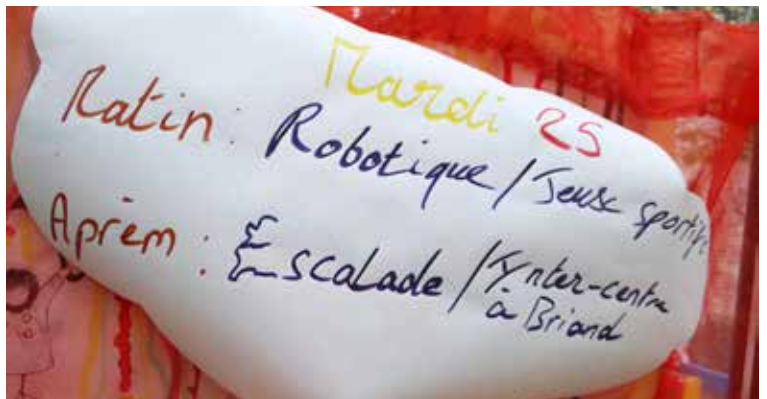 Mardi 25
Matin : Robotique / Jeux sportifs
Aprèm : Escalade / Inter-centre
à Briand